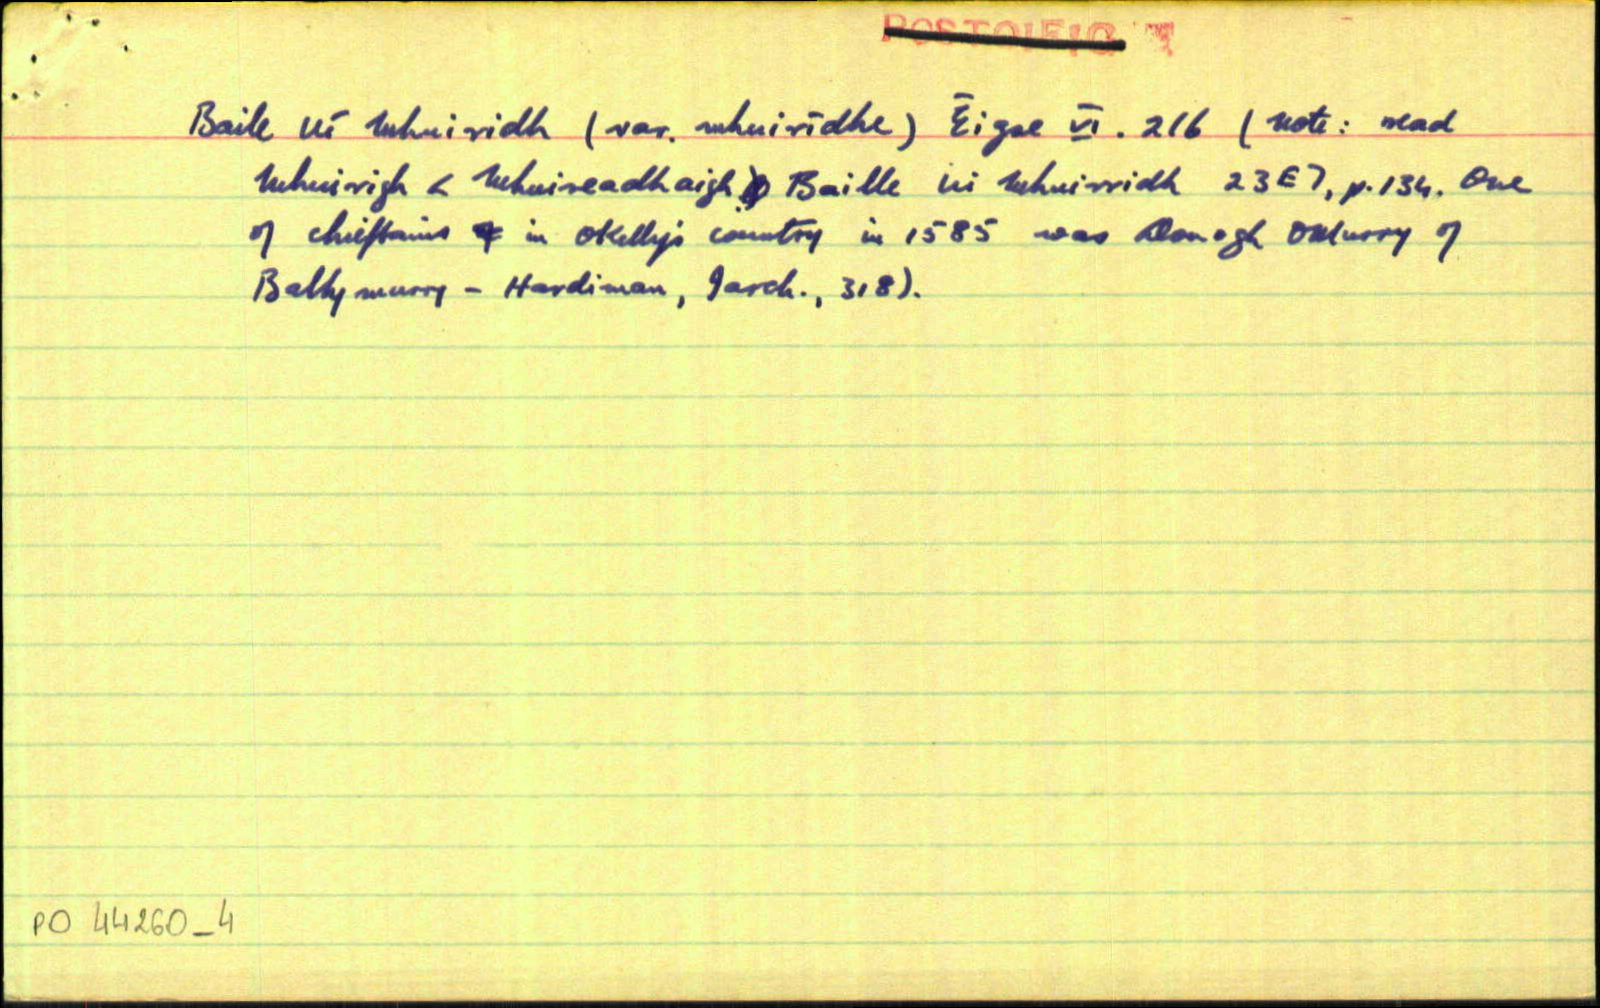 POSTOIFIG
Baile Uí Mhuiridh (var. mhuirīdhe) Ēigse VI. 216 (Note: read
Mhuirigh < Mhuireadhaigh) Baille Ui Mhuirridh 23E7, p.134. One
of chieftains in OKelly's country in 1585 was Donogh OMurry of
Ballymurry – Hardiman, Iarch., 318).
PO 44260_4